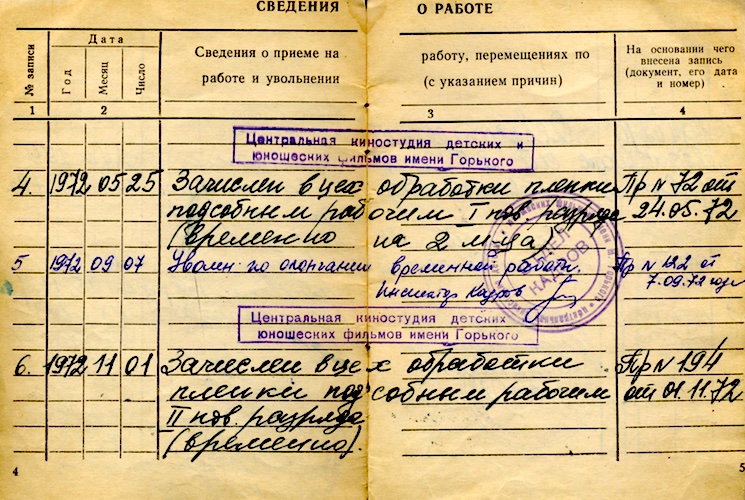 СВЕДЕНИЯ О РАБОТЕ
№ записи
Дата
Год
Месяц
Число
Сведения о приеме на работу, перемещениях по
работе и увольнении (с указанием причин)
На основании чего
внесена запись
(документ, его дата
и номер)
1 2 3 4
Центральная киностудия детских и
юношеских фильмов имени Горького
4. 1972 05 25 Зачислен в цех обработки пленки Пр N 72 от
подсобным рабочим I пов. разряда 24.05.72
(временно на 2 м-ца)
5 1972 09 07 Уволен по окончании временной работы. Пр N 122 от
Инспектор Кадров 7.09.72 года
ОТДЕЛ
КАДРОВ
Центральная киностудия детских
юношеских фильмов имени Горького
6. 1972 11 01 Зачислен в цех обработки Пр N 194
пленки подсобным рабочим от 01.11.72
II пов. разряда
(временно).
4 5